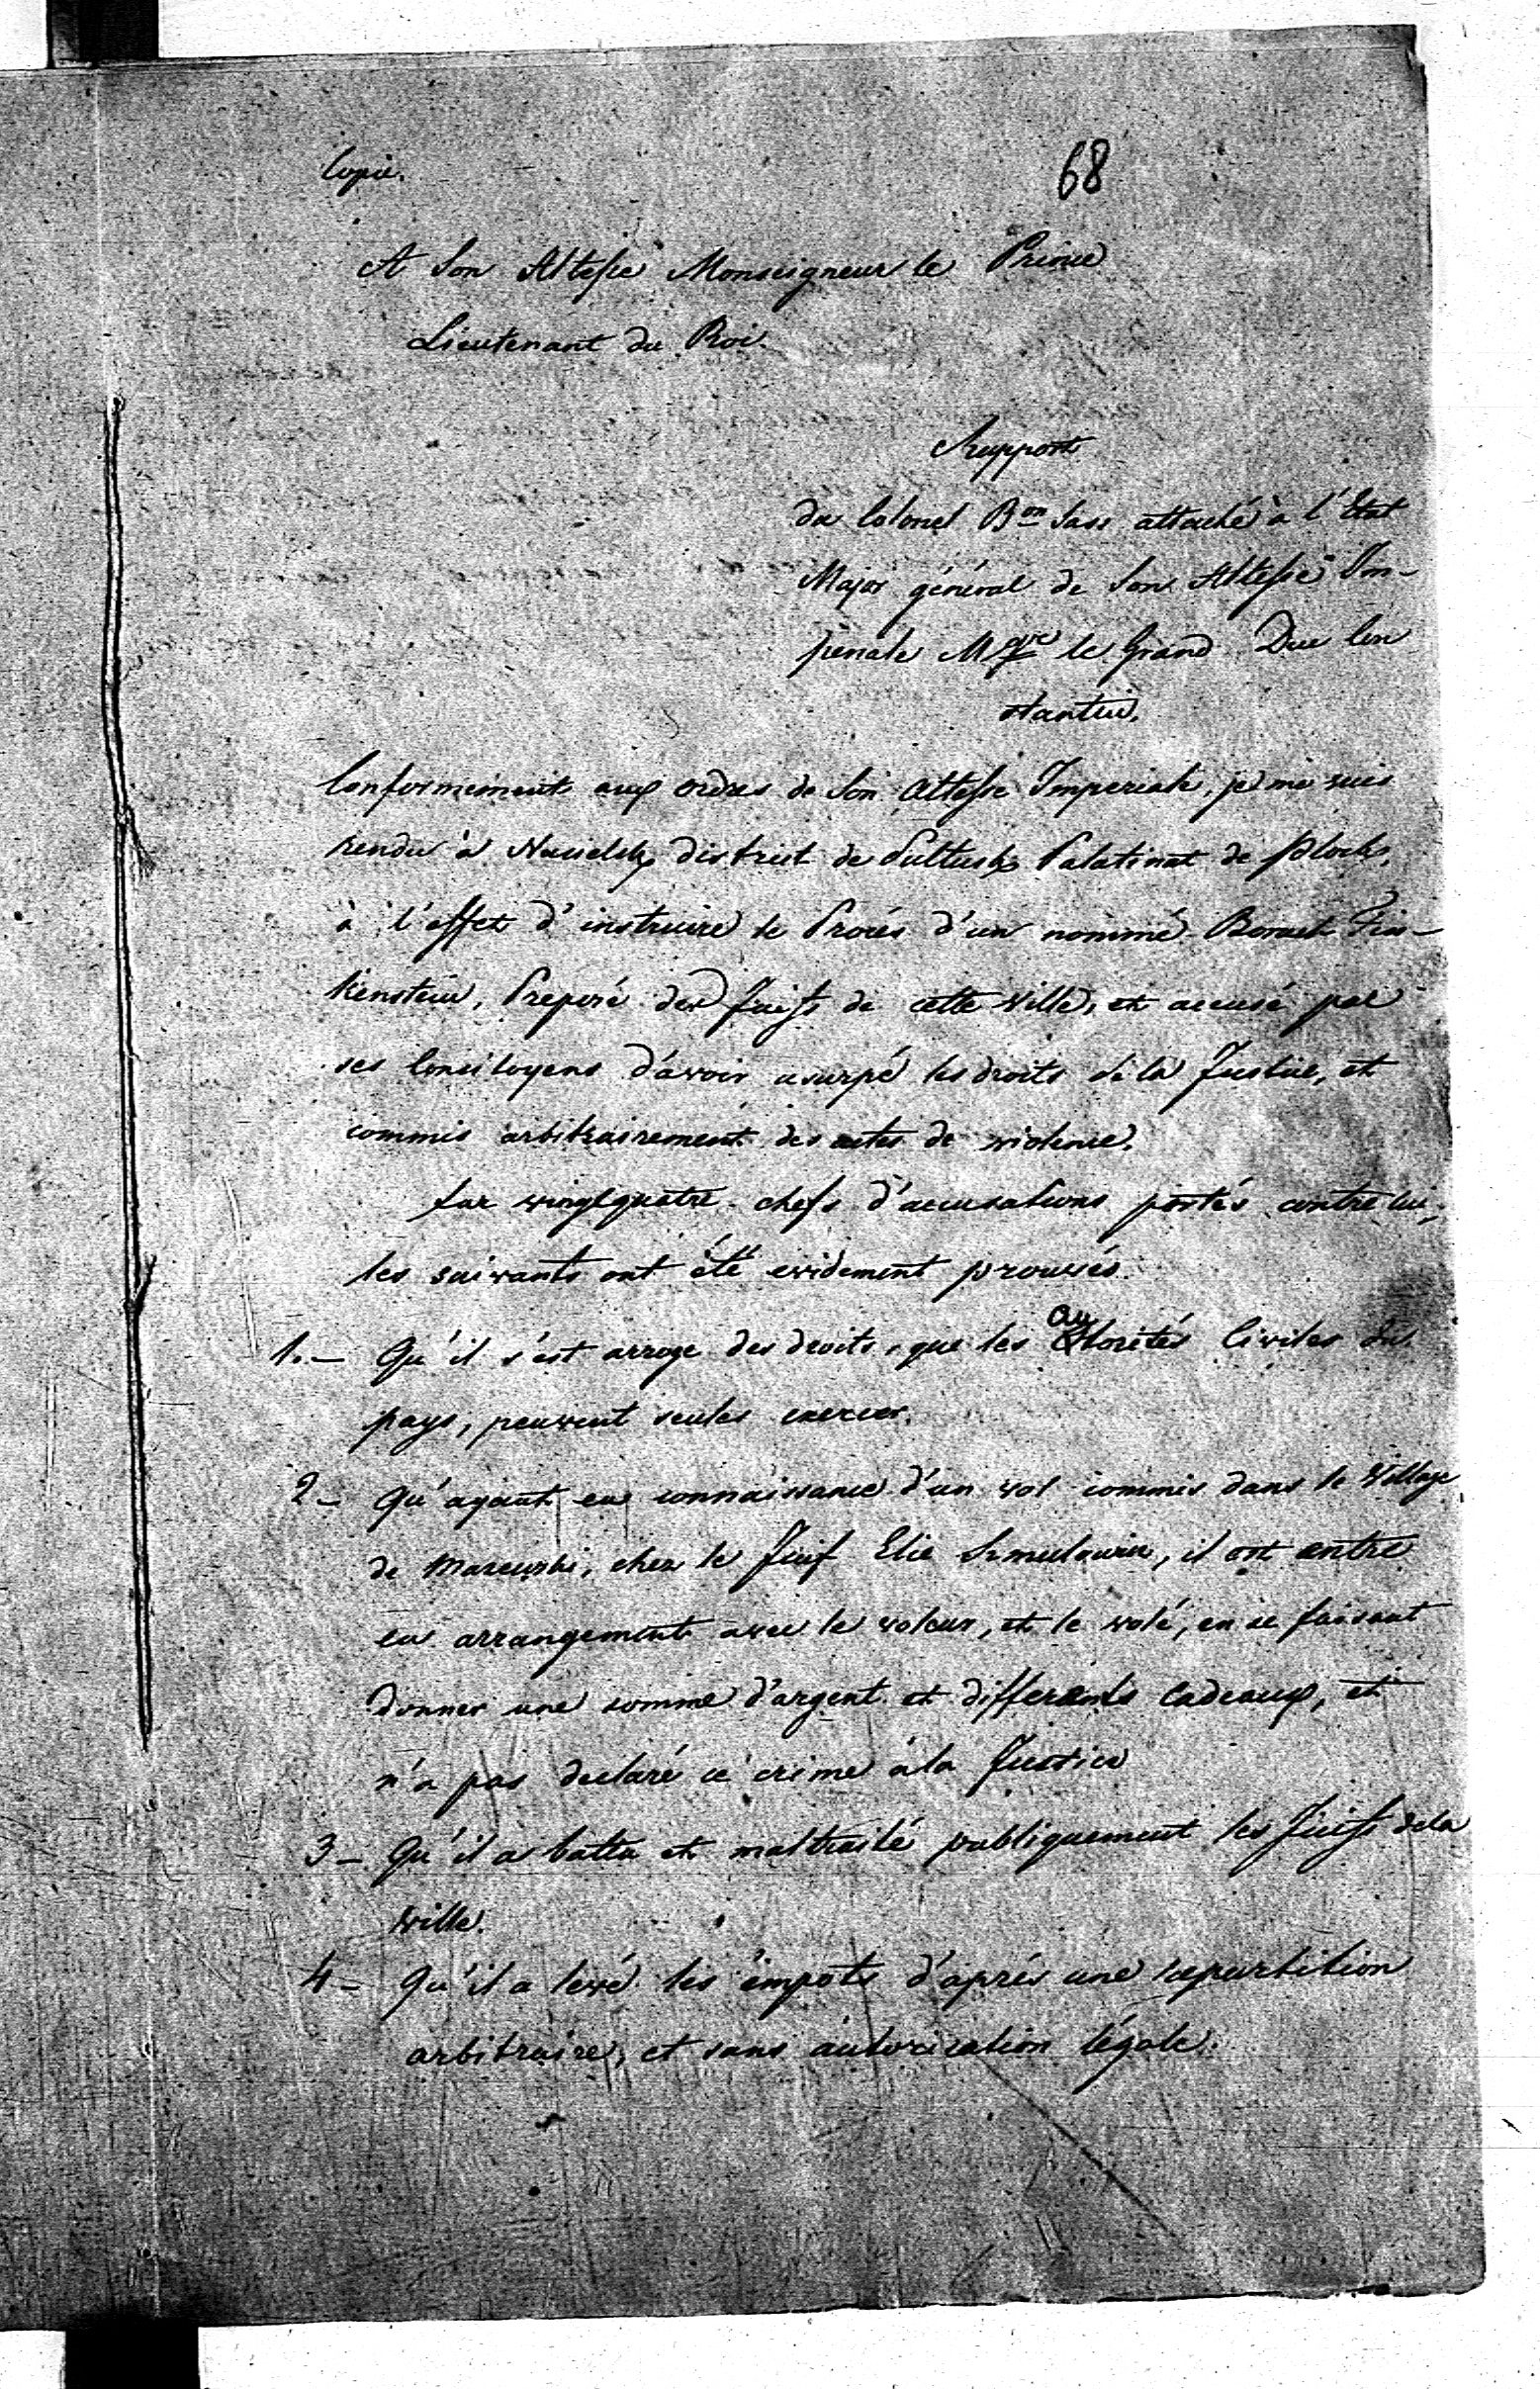 Copie.
68
A Son Altesse Monseigneur le Prince
Lieutenant du Roi.
Rapport
du Colonel Bon Sass attaché à l'Etat
Major général de Son Altesse Im-
periale Mgr le Grand Duc Con
stantin.
Conformement aux ordres de Son Altesse Imperiale, je me suis
rendu à Nasielsk, district de Pultusk Palatinat de Plock,
à l'effet d'instruire le Procés d'un nommé Boruch Fin-
kenstein, Preposé des Juifs de cette ville, et accusé par
ses Concitoyens d'avoir usurpé les droits de la Justice, et
commis arbitrairement des actes de violence.
Sur vingtquatre chefs d'accusations portés contre lui,
les suivants ont été evidement prouvés.
1.- Qu'il s'est arrogé des droits, que les Autorités Civiles du
pays, peuvent seules exercer.
2- Qu'ayant eu connaissance d'un vol commis dans le Village
de, chez le Juif Elie Szmulowicz, il est entré
en arrangement avec le voleur, et le volé, en se faisant
donner une somme d'argent et differents Cadeaux, et
n'a pas declaré ce crime à la Justice
3- Qu'il a battu et maltraité publiquement les Juifs de la
ville.
4- Qu'il a levé les impots d'après une repartition
arbitraire, et sans autorisation légale.